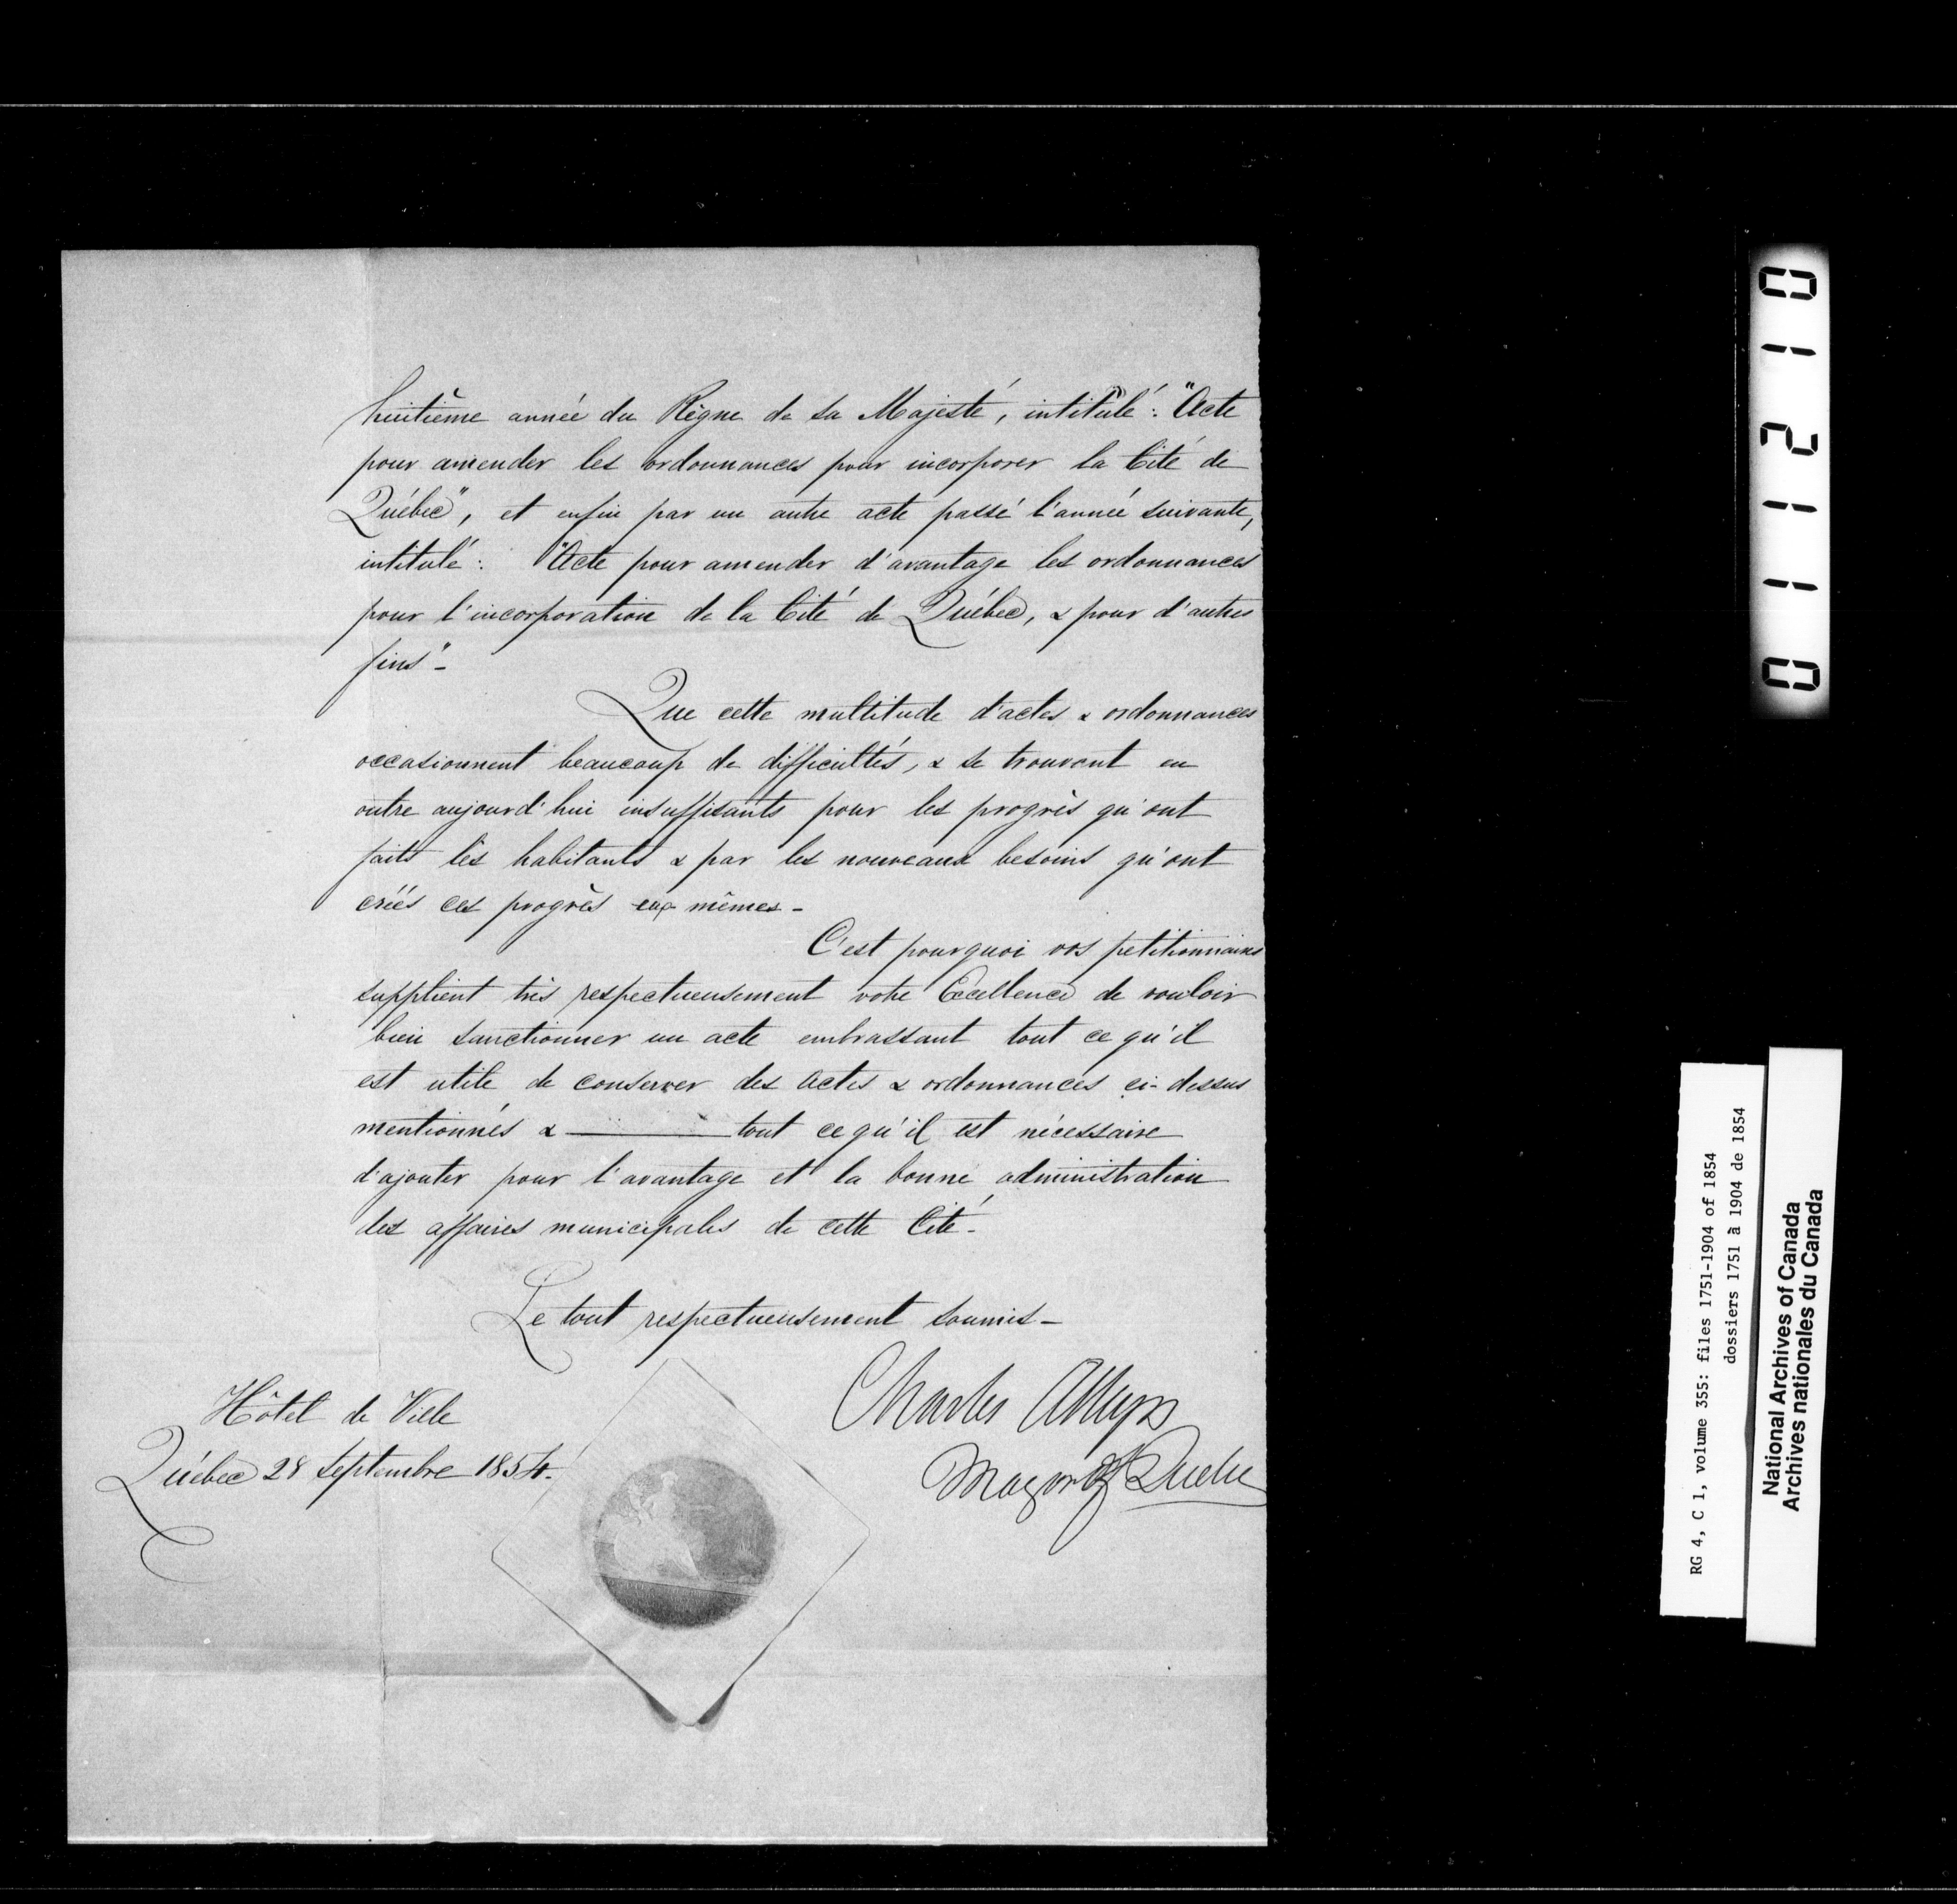 huitième année du Règne de Sa Majesté, intitulé : "Acte
pour amender les ordonnances pour incorporer la Cité de
Québec", et enfin par un autre acte passé l'année suivante,
intitulé : "Acte pour amender d'avantage les ordonnances
pour l'incorporation de la Cité de Québec, & pour d'autres
fins" -
Que cette multitude d'actes & ordonnances
occasionnent beaucoup de difficultés, & se trouvent en
outre aujourd'hui insuffisants pour les progrès qu'ont
faits les habitants & par les nouveaux besoins qu'ont
créés ces progrès eux mêmes -
C'est pourquoi vos petitionnaires
supplient très respectueusement votre Excellence de vouloir
bien sanctionner un acte embrassant tout ce qu'il
est utile de conserver des actes & ordonnances ci-dessus
mentionnés & ——— tout ce qu'il est nécessaire
d'ajouter pour l'avantage et la bonne administration
des affaires municipales de cette Cité -
Le tout respectueusement soumis -
Hôtel de Ville
Québec 28 Septembre 1854.
Charles Alleyn
Mayor of Quebec
01210
RG 4, C 1, volume 355: files 1751-1904 of 1854
dossiers 1751 à 1904 de 1854
National Archives of Canada
Archives nationales du Canada